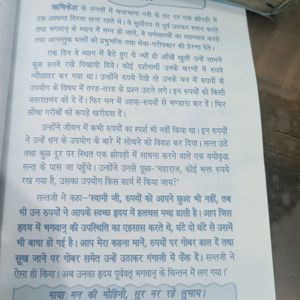 ऋषिकेश के जंगलों में चन्द्रभागा नदी के तट पर एक झोपड़ी में
एक अत्यन्त विरक्त सन्त रहते थे। वे सूर्योदय से पूर्व उठकर स्नान करते
तथा भगवान् के ध्यान में मग्न हो जाते, वे धर्मशास्त्रों का स्वाध्याय करते
तथा आगन्तुक भक्तों को प्रभुभक्ति तथा सेवा-परोपकार की प्रेरणा देते।
एक दिन वे ध्यान में बैठे हुए थे ज्यों ही आँखें खुलीं उन्हें सामने
कुछ रुपये रखे दिखायी दिये। कोई दर्शनार्थी उनके चरणों में रुपये
न्यौछावर कर गया था। उन्होंने रुपये देखे तो उनके मन में रुपयों के
उपयोग के विषय में तरह-तरह के प्रश्न उठने लगे। इन रुपयों को किसी
जरूरतमंद को दे दें। फिर मन में आया-रुपयों से भण्डारा कर दें। फिर
सोचा गरीबों को कपड़े खरीदवा दें।
उन्होंने जीवन में कभी रुपयों का स्पर्श भी नहीं किया था। इन रुपयों
ने उन्हें धन के उपयोग के बारे में सोचने को विवश कर दिया। सन्त उठे
तथा कुछ दूर पर स्थित एक झोपड़ी में साधना करने वाले एक वयोवृद्ध
सन्त के पास जा पहुँचे। उन्होंने उनसे पूछा-'महाराज, कोई भक्त रुपये
रख गया है, उसका उपयोग किस कार्य में किया जाय?'
सन्तजी ने कहा-'स्वामी जी, रुपयों को आपने छुआ भी नहीं, तब
भी उन रुपयों ने आपके स्वच्छ हृदय में हलचल मचा डाली है। आप जिस
हृदय में भगवान् की उपस्थिति का एहसास करते थे, घंटे दो घंटे से उसमें
भी बाधा हो गई है। आप मेरा कहना मानें, रुपयों पर गोबर डाल दें तथा
सूख जाने पर गोबर समेत उन्हें उठाकर गंगाजी में फेंक दें। सन्तजी ने
ऐसा ही किया। अब उनका हृदय पूर्ववत् भगवान् के चिन्तन में लग गया।'
माया मन की मोहिनी, सुर नर रहे लुभाय।